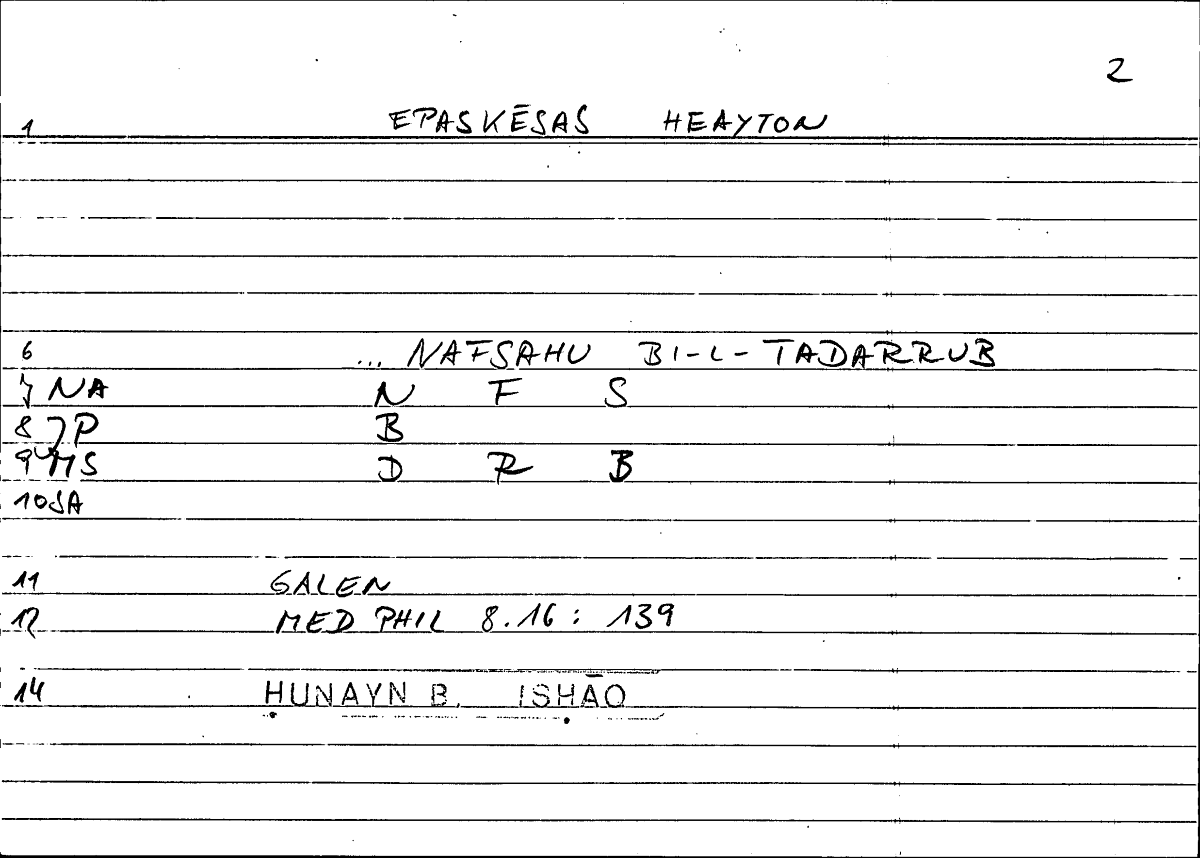 2
1 EPASKĒSAS HEAYTON
6 ... NAFSAHU BI-L-TADARRUB
7 NA N F S
8 JP B
9 MS D R B
10 SA
11 GALEN
12 MED PHIL 8.16: 139
14 ḤUNAYN B. ISḤĀQ